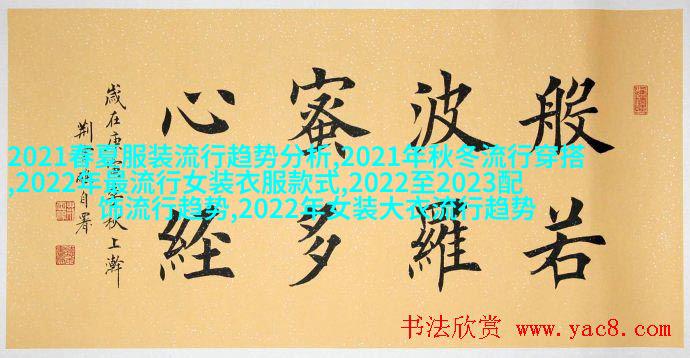 般若
波羅
蜜多
心経
歲在庚秋上澣
荆自署
2021春夏服装流行趋势分析,2021年秋冬流行穿搭
,2022年最流行女装衣服款式,2022至2023配
饰流行趋势,2022年女装大衣流行趋势
书法欣赏 www.yac8.com